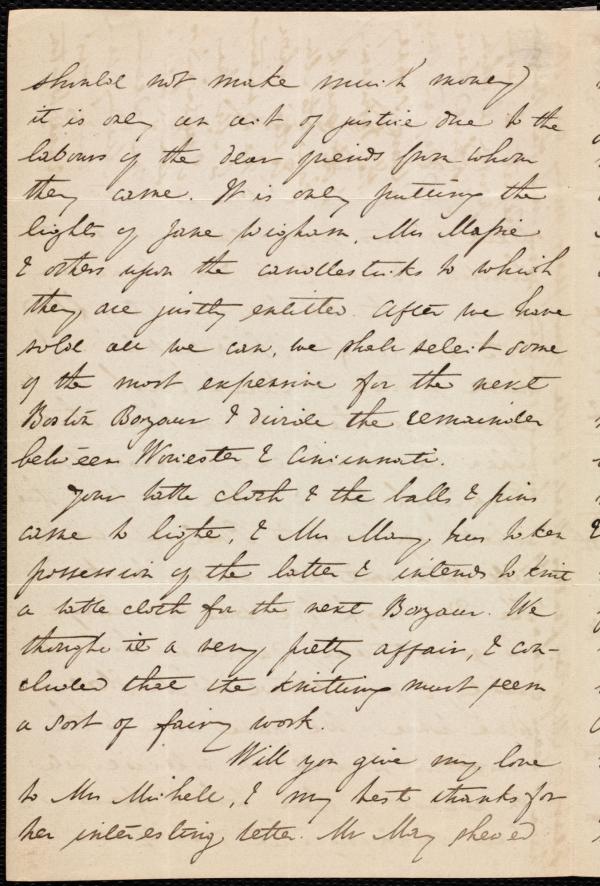 should not make much money)
it is only an act of justice due to the
labours of the dear friends from whom
they came. It is only putting the
lights of Jane Wigham, Mrs Massie
& others upon the candlesticks to which
they are justly entitled. After we have
sold all we can, we shall select some
of the most expensive for the next
Boston Bazaar & divide the remainder
between Worcester & Cincinnati.
Your table cloth & the balls & pins
came to light, & Mrs May has taken
possession of the latter & intends to knit
a table cloth for the next Bazaar. We
thought it a very pretty affair, & con-
cluded that the knitting must seem
a sort of fairy work.
Will you give my love
to Mrs Michell, & my best thanks for
her interesting letter. Mr May shewed